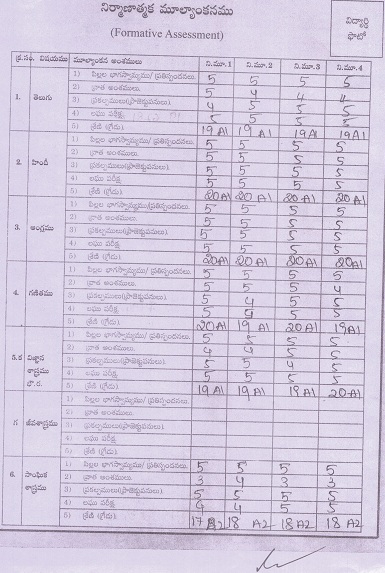 నిర్మాణాత్మక మూల్యాంకనము
(Formative Assessment)
విద్యార్థి
ఫొటో
క్ర.సం. విషయము మూల్యాంకన అంశములు ని.మూ.1 ని.మూ.2 ని.మూ.3 ని.మూ.4
1) పిల్లల భాగస్వామ్యము/ ప్రతిస్పందనలు. 5 5 5 5
2) వ్రాత అంశములు. 5 4 4 4
1. తెలుగు 3) ప్రకల్పములు(ప్రాజెక్టుపనులు). 4 5 5 5
4) లఘు పరీక్ష. 5 5 5 5
5) శ్రేణి (గ్రేడు). 19 A1 19 A1 19 A1 19 A1
1) పిల్లల భాగస్వామ్యము/ ప్రతిస్పందనలు. 5 5 5 5
2) వ్రాత అంశములు. 5 5 5 5
2. హిందీ 3) ప్రకల్పములు(ప్రాజెక్టుపనులు). 5 5 5 5
4) లఘు పరీక్ష. 5 5 5 5
5) శ్రేణి (గ్రేడు). 20 A1 20 A1 20 A1 20 A1
1) పిల్లల భాగస్వామ్యము/ ప్రతిస్పందనలు. 5 5 5 5
2) వ్రాత అంశములు. 5 5 5 5
3. ఆంగ్లము 3) ప్రకల్పములు(ప్రాజెక్టుపనులు). 5 5 5 5
4) లఘు పరీక్ష. 5 5 5 5
5) శ్రేణి (గ్రేడు). 20 A1 20 A1 20 A1 20 A1
1) పిల్లల భాగస్వామ్యము/ ప్రతిస్పందనలు. 5 5 5 5
2) వ్రాత అంశములు. 5 5 5 4
4. గణితము 3) ప్రకల్పములు(ప్రాజెక్టుపనులు). 5 4 5 5
4) లఘు పరీక్ష. 5 5 5
5) శ్రేణి (గ్రేడు). 20 A1 19 A1 20 A1 19 A1
1) పిల్లల భాగస్వామ్యము/ ప్రతిస్పందనలు. 5 5 5 5
2) వ్రాత అంశములు. 4 4 5 5
5.క విజ్ఞాన శాస్త్రము భౌ.ర. 3) ప్రకల్పములు(ప్రాజెక్టుపనులు). 5 5 4 5
4) లఘు పరీక్ష. 5 5 5 5
5) శ్రేణి (గ్రేడు). 19 A1 19 A1 19 A1 20 A1
1) పిల్లల భాగస్వామ్యము/ ప్రతిస్పందనలు.
2) వ్రాత అంశములు.
గ జీవశాస్త్రము 3) ప్రకల్పములు(ప్రాజెక్టుపనులు).
4) లఘు పరీక్ష.
5) శ్రేణి (గ్రేడు).
1) పిల్లల భాగస్వామ్యము/ ప్రతిస్పందనలు. 5 5 5 5
6. సాంఘిక శాస్త్రము 2) వ్రాత అంశములు. 3 4 3 3
3) ప్రకల్పములు(ప్రాజెక్టుపనులు). 5 5 5 5
4) లఘు పరీక్ష. 4 4 5 5
5) శ్రేణి (గ్రేడు). 17 A2 18 A2 18 A2 18 A2